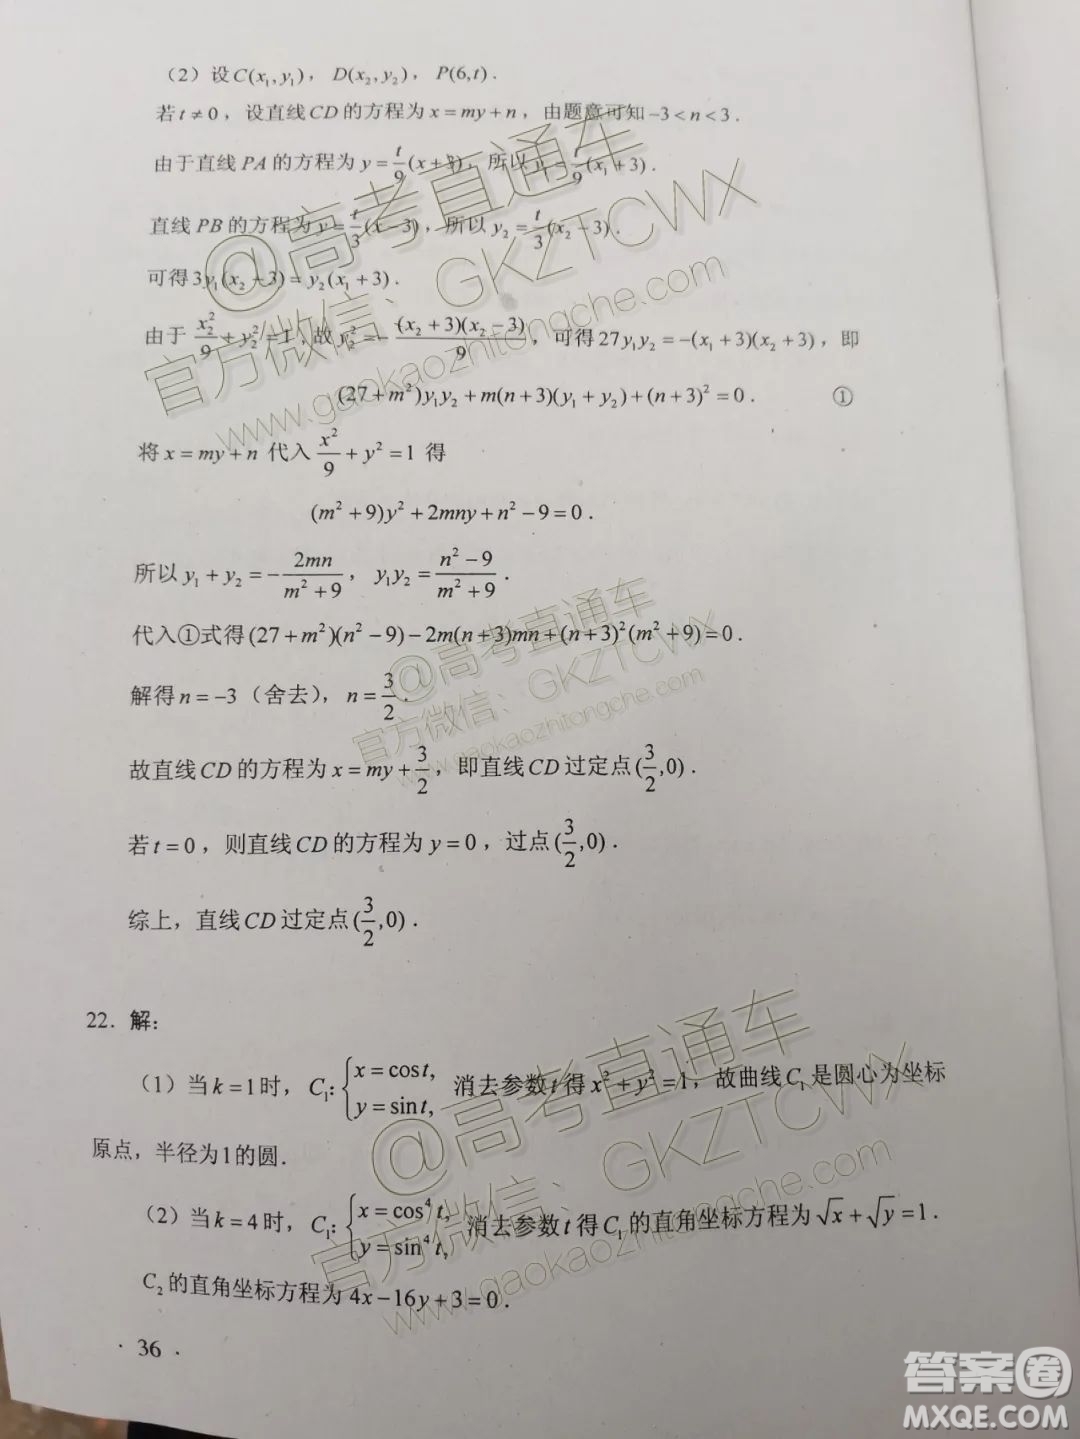 （2）设C(x₁,y₁)，D(x₂,y₂)，P(6,t)．
若t≠0，设直线CD的方程为x=my+n，由题意可知-3<n<3．
由于直线PA的方程为y=t/9(x+3)，所以y₁=t/9(x₁+3)．
直线PB的方程为y=t/3(x-3)，所以y₂=t/3(x₂-3)．
可得3y₁(x₂-3)=y₂(x₁+3)．
由于x₂²/9+y₂²=1，故y₂²=-(x₂+3)(x₂-3)/9，可得27y₁y₂=-(x₁+3)(x₂+3)，即
(27+m²)y₁y₂+m(n+3)(y₁+y₂)+(n+3)²=0． ①
将x=my+n代入x²/9+y²=1得
(m²+9)y²+2mny+n²-9=0．
所以y₁+y₂=-2mn/(m²+9)，y₁y₂=(n²-9)/(m²+9)．
代入①式得(27+m²)(n²-9)-2m(n+3)mn+(n+3)²(m²+9)=0．
解得n=-3（舍去），n=3/2．
故直线CD的方程为x=my+3/2，即直线CD过定点(3/2,0)．
若t=0，则直线CD的方程为y=0，过点(3/2,0)．
综上，直线CD过定点(3/2,0)．
22．解：
（1）当k=1时，C₁:{x=cost, y=sint, 消去参数t得x²+y²=1，故曲线C₁是圆心为坐标
原点，半径为1的圆．
（2）当k=4时，C₁:{x=cos⁴t, y=sin⁴t, 消去参数t得C₁的直角坐标方程为√x+√y=1．
C₂的直角坐标方程为4x-16y+3=0．
· 36 ·
@高考直通车
官方微信、GKZTCWX
www.gaokaozhitongche.com
@高考直通车
官方微信、GKZTCWX
www.gaokaozhitongche.com
@高考直通车
官方微信、GKZTCWX
www.gaokaozhitongche.com
答案圈
MXQE.COM